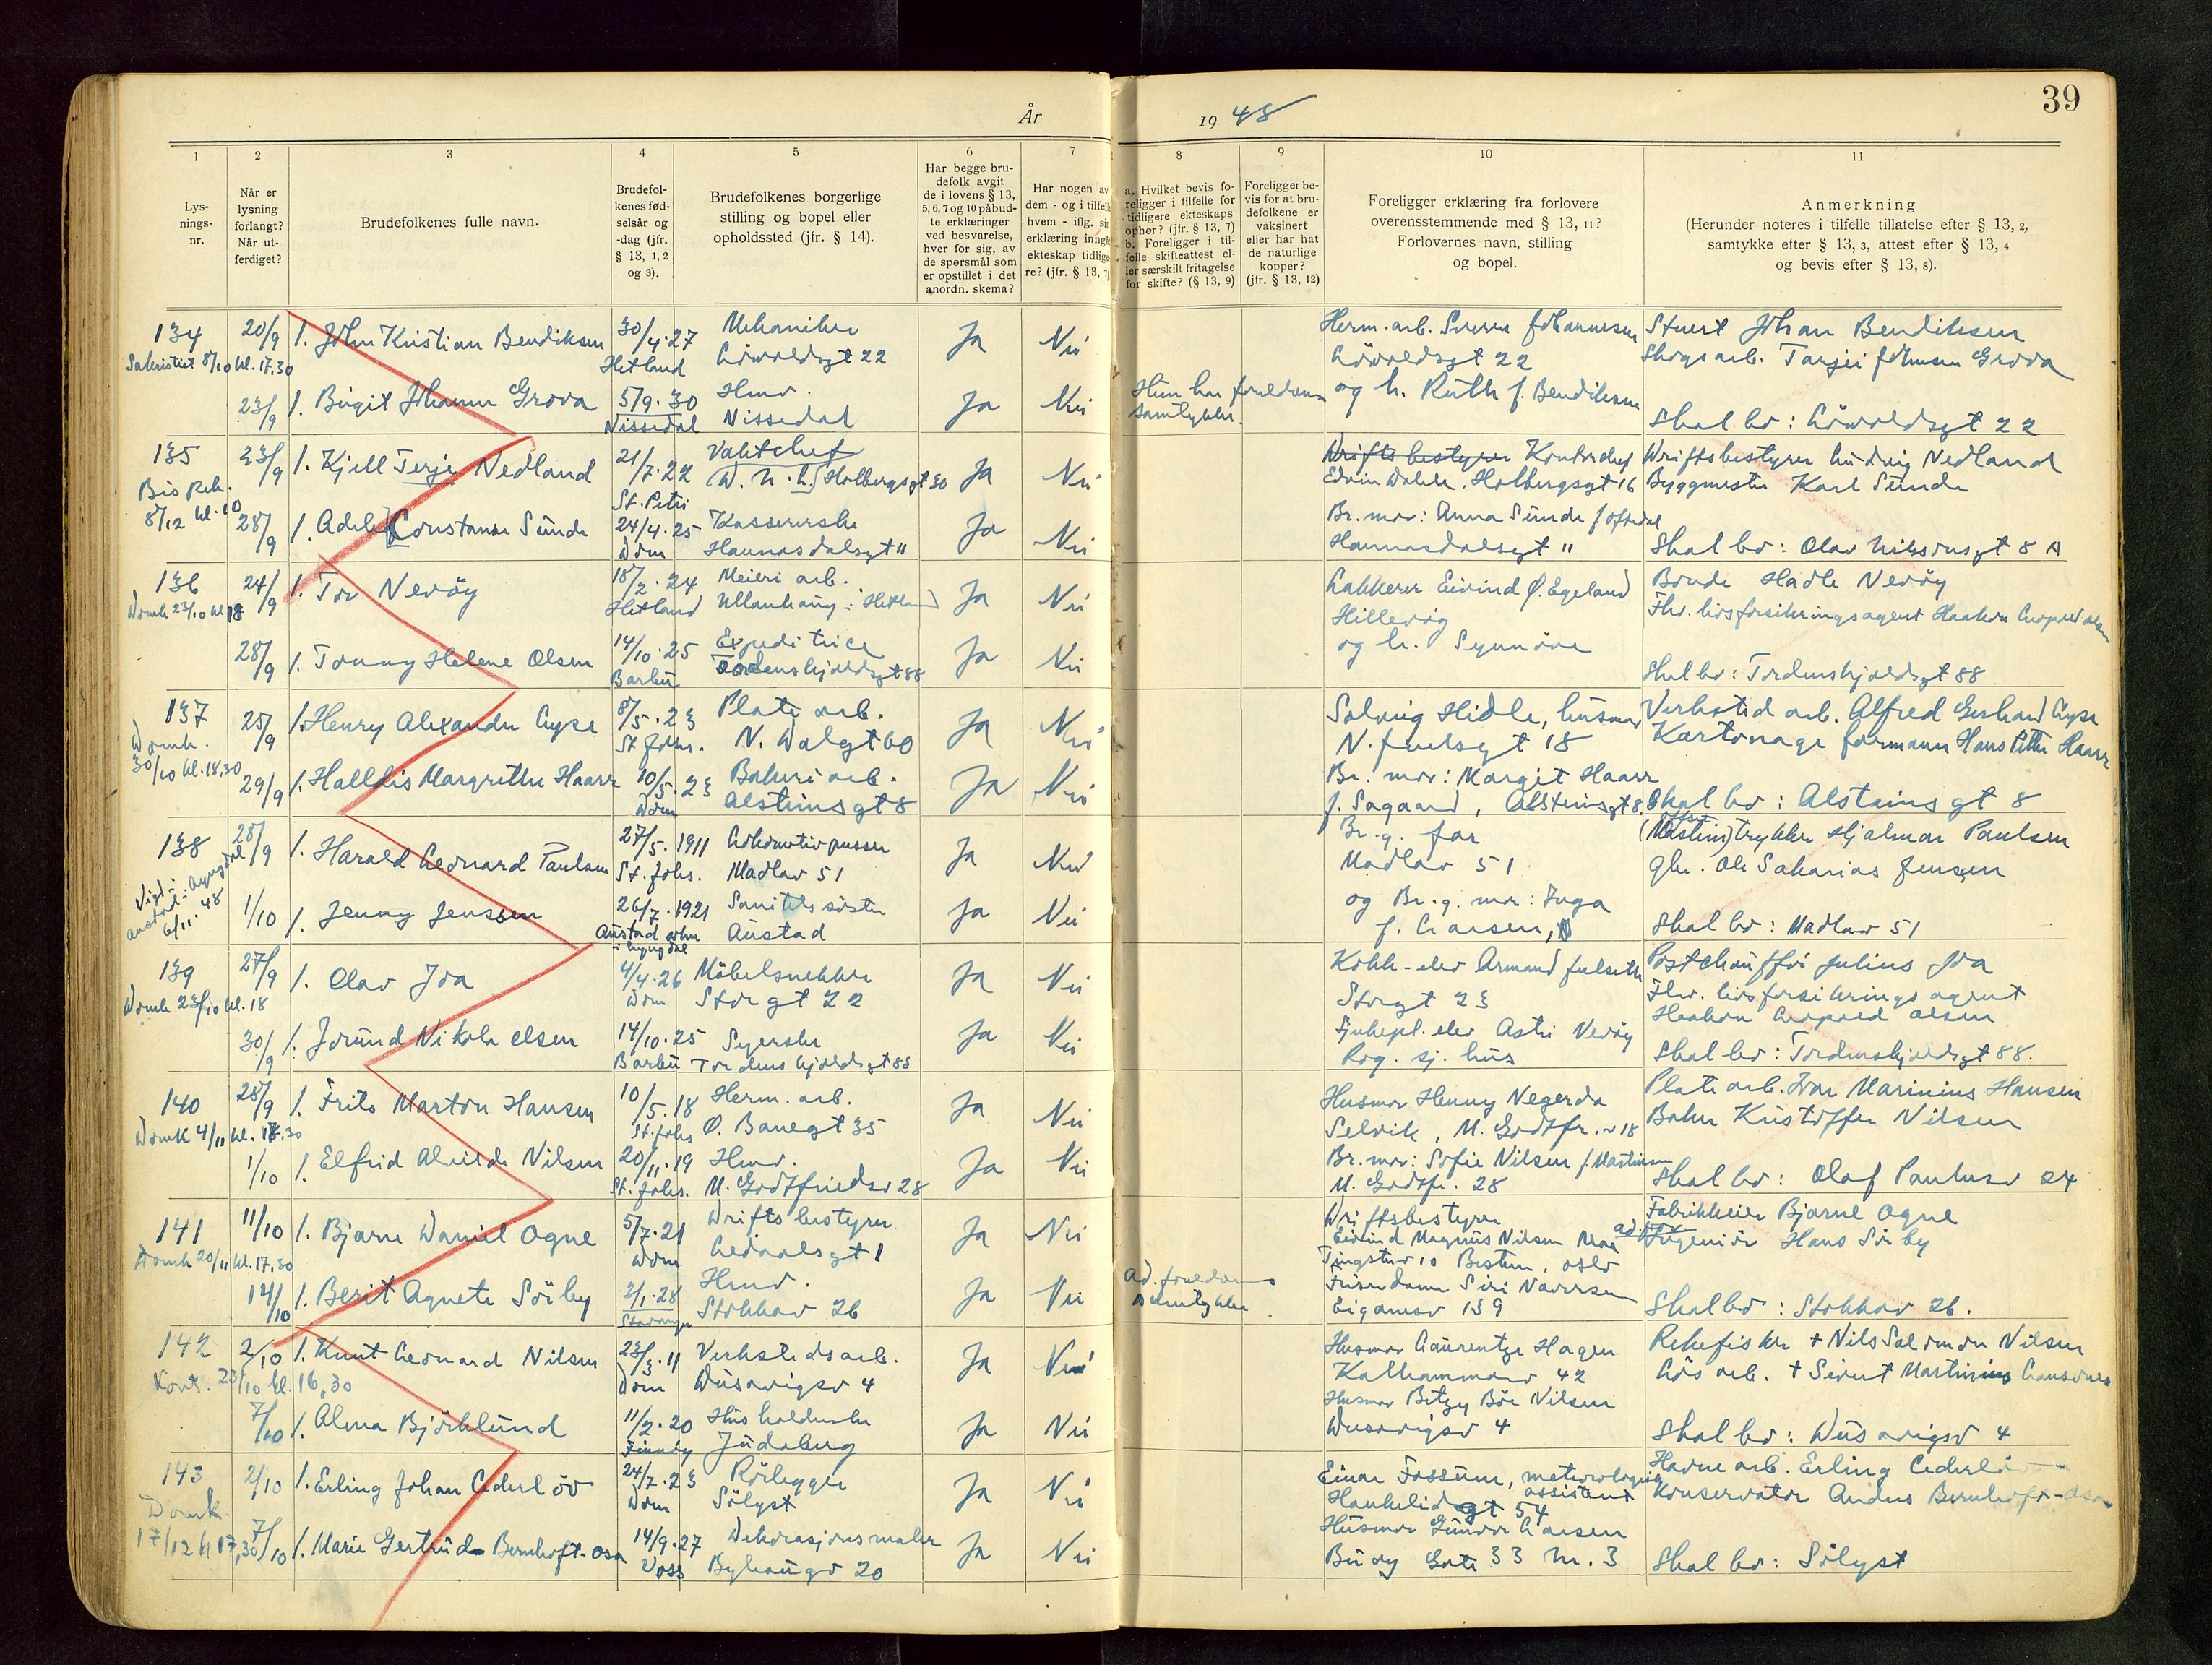 År 1948
39
1
2
3
4
5
6
7
8
9
10
11
Lys-
nings-
nr.
Når er
lysning
forlangt?
Når ut-
ferdiget?
Brudefolkenes fulle navn.
Brudefol-
kenes fød-
selsår og
-dag (jfr.
§ 13, 1, 2
og 3).
Brudefolkenes borgerlige
stilling og bopel eller
opholdssted (jfr. § 14).
Har begge bru-
defolk avgit
de i lovens § 13,
5, 6, 7 og 10 påbud-
te erklæringer
ved besvarelse,
hver for sig, av
de spørsmål som
er opstillet i det
anordn. skema?
Har nogen av
dem - og i tilfelle
hvem - iflg. sin
erklæring inngå
ekteskap tidlige-
re? (jfr. § 13, 7)
a. Hvilket bevis fo-
religger i tilfelle for
tidligere ekteskaps
ophør? (jfr. § 13, 7)
b. Foreligger i til-
felle skifteattest el-
ler særskilt fritagelse
for skifte? (§ 13, 9)
Foreligger be-
vis for at bru-
defolkene er
vaksinert
eller har hat
de naturlige
kopper?
(jfr. § 13, 12)
Foreligger erklæring fra forlovere
overensstemmende med § 13, 11?
Forlovernes navn, stilling
og bopel.
Anmerkning
(Herunder noteres i tilfelle tillatelse efter § 13, 2,
samtykke efter § 13, 3, attest efter § 13, 4
og bevis efter § 13, 8).
134
20/9
1. John Kristian Bendiksen
30/4.27
Hetland
Mekaniker
Lövoldsgt 22
Ja
Nei
Herm. arb. Sverre Johannesen
Lövoldsgt 22
Stuert Johan Bendiksen
Skogsarb. Tarjei Johnsen Grova
Sakristiet 8/10 kl. 17,30
23/9
1. Birgit Johanne Grova
5/9.30
Nissedal
Hmv.
Nissedal
Ja
Nei
Hun har foreldrenes
samtykke.
og h. Ruth f. Bendiksen
Skal bo: Lövoldsgt 22
135
23/9
1. Kjell Terje Nedland
21/7.22
St. Petri
Vaktchef
D.N.L. Holbergsgt 30
Ja
Nei
Driftsbestyrer Kontorchef
Edvin Walde. Holbergsgt 16
Driftsbestyrer Ludvig Nedland
Byggmester Karl Sunde
8/12 kl. 10
28/9
1. Adele Constanse Sunde
24/4.25
Dom
Kassererske
Haunasdalsgt 11
Ja
Nei
Br. mor: Anna Sunde f. Oftedal
Haunasdalsgt 11
Skal bo: Olav Nilssonsgt 8 A
136
24/9
1. Tor Nevöy
18/2.24
Hetland
Meieri arb.
Ullanhaug i Hetland
Ja
Nei
Lakkerer Eivind Ø. Egeland
Hillevåg
Bonde Hadle Nevöy
Fhv. livsforsikringsagent Haakon Leopold Olsen
Domk 23/10 kl 18
28/9
1. Tonny Helene Olsen
14/10.25
Barbu
Expeditrice
Tordenskjoldsgt 88
Ja
Nei
og h. Synnöve
Skal bo: Tordenskjoldsgt 88
137
25/9
1. Henry Alexander Lyse
8/5.23
St. Johs.
Plate arb.
N. Dalgt 60
Ja
Nei
Solveig Hidle, husmor
N. Juelsgt 18
Verksted arb. Alfred Gerhard Lyse
Kartonage formann Hans Petter Haarr
Domk.
30/10 kl. 18,30
29/9
1. Halldis Margrethe Haarr
10/5.23
Dom
Bakeri arb.
Alsteinsgt 8
Ja
Nei
Br. mor: Margit Haarr
f. Sagaard, Alsteinsgt 8
Skal bo: Alsteinsgt 8
138
28/9
1. Harald Leonard Paulsen
27/5.1911
St. Johs.
Lokomotivpusser
Madlav 51
Ja
Nei
Br.g. far
Madlav 51
trykker Hjalmar Paulsen
Gbr. Ole Sakarias Jenssen
6/11.48
1/10
1. Jenny Jenssen
26/7.1921
Austad
Sanitetssöster
Austad
Ja
Nei
og Br.g. mor: Inga
f. Larsen,
Skal bo: Madlav 51
139
27/9
1. Olav Joa
4/4.26
Dom
Möbelsnekker
Storgt 22
Ja
Nei
Kokk-elev Armand Fulseth
Storgt 23
Postchauffør Julius Joa
Fhv. livsforsikrings agent
Haakon Leopold Olsen
Domk 23/10 kl. 18
30/9
1. Jorund Nikole Olsen
14/10.25
Barbu
Syerske
Tordenskjoldsgt 88
Ja
Nei
Sykepl. elev Astri Nevöy
Rog. sj. hus
Skal bo: Tordenskjoldsgt 88.
140
28/9
1. Frits Marton Hansen
10/5.18
St. Johs
Herm. arb.
Ø. Banegt 35
Ja
Nei
Husmor Henny Negerda
Selvik, M. Godtfr. v 18
Plate arb. Ivar Marinius Hansen
Baker Kristoffer Nilsen
Domk 4/11 kl. 17.30
1/10
1. Elfrid Alvilde Nilsen
20/11.19
St. Johs.
Hmv.
M. Godtfriedsv 28
Ja
Nei
Br. mor: Sofie Nilsen f. Martinsen
M. Godtfr. 28
Skal bo: Olaf Paulusv 24
141
11/10
1. Bjarne Daniel Ogne
5/7.21
Dom
Driftsbestyrer
Ledaalsgt 1
Ja
Nei
Driftsbestyrer
Eivind Magnus Nilsen
Tingstuv 10 Bestum, Oslo
Fabrikkeier Bjarne Ogne
Ingeniör Hans Sörby
Domk 20/11 kl. 17,30
14/10
1. Berit Agnete Sörby
3/1.28
Stavanger
Hmv.
Stokkav 26
Ja
Nei
Ad. foreldrenes
samtykke
Frisördame Siri Naversen
Eiganesv 139
Skal bo: Stokkav 26.
142
2/10
1. Knut Leonard Nilsen
23/3.11
Dom
Verkstedsarb.
Dusavigsv 4
Ja
Nei
Husmor Laurentze Hagen
Kalhammarv 42
Rekefisker + Nils Salomon Nilsen
Lösarb. + Sivert Martinius
Kont. 23/10 kl. 16,30
7/10
1. Alma Björklund
11/2.20
Finnöy
Husholderske
Judaberg
Ja
Nei
Husmor Betzy Böe Nilsen
Dusavigsv 4
Skal bo: Dusavigsv 4
143
2/10
1. Erling Johan Cederlöv
24/7.23
Dom
Rörlegger
Sölyst
Ja
Nei
Einar Fossum, meteorologisk
assistent
Haukeligt 54
Havne arb. Erling Cederlöv
Konservator Anders Bernhoft-Osa
Domk.
17/12 kl 17,30
7/10
1. Marie Gertrud Bernhoft-Osa
14/9.27
Voss
Dekorasjonsmaler
Byhaugv 20
Ja
Nei
Husmor Gunvor Larsen
Buöy Gate 33 Nr. 3
Skal bo: Sölyst